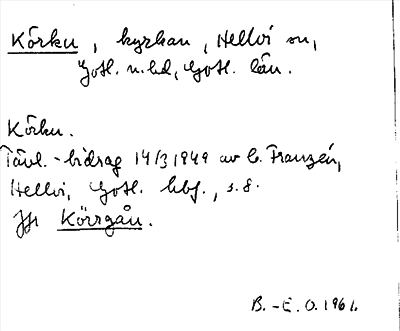 Körku, kyrkan, Hellvi sn,
Gotl. n. hd, Gotl. län.
Körku.
Tävl.-bidrag 14/3 1949 av C. Franzén,
Hellvi, Gotl. hbf., s. 8.
Jfr Körrgån.
B.-E. O. 1961.